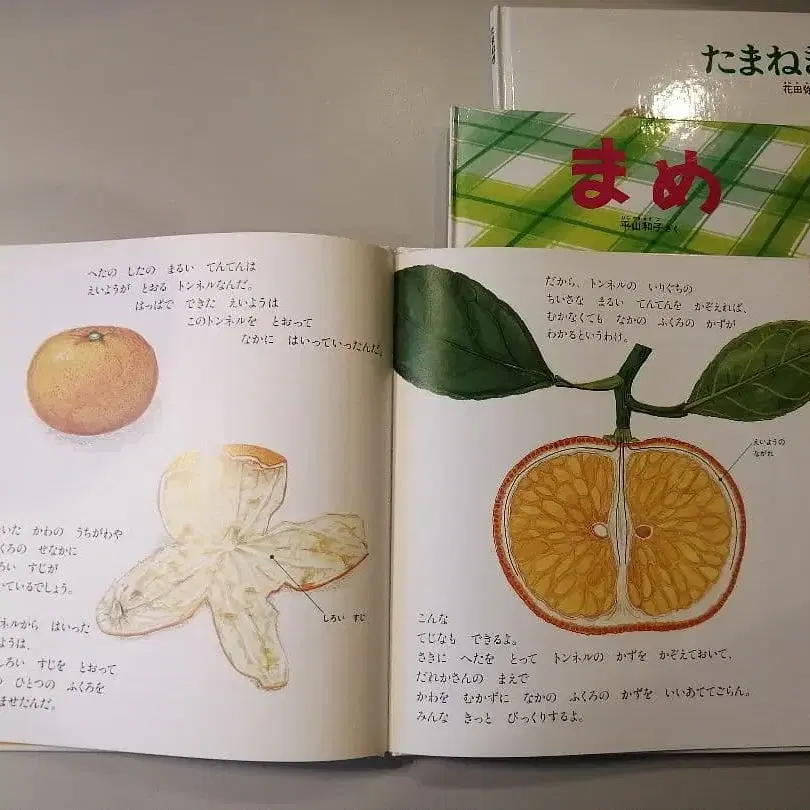 たまねぎ
花田
まめ
平山和子さく
へたの したの まるい てんてんは
えいようが とおる トンネルなんだ。
はっぱで できた えいようは
このトンネルを とおって
なかに はいっていったんだ。
いた かわの うちがわや
くろの せなかに
ろい すじが
いているでしょう。
ネルから はいった
ようは、
しろい すじを とおって
ひとつの ふくろを
ませたんだ。
しろい すじ
だから、トンネルの いりぐちの
ちいさな まるい てんてんを かぞえれば、
むかなくても なかの ふくろの かずが
わかるというわけ。
えいようの
ながれ
こんな
てじなも できるよ。
さきに へたを とって トンネルの かずを かぞえておいて、
だれかさんの まえで
かわを むかずに なかの ふくろの かずを いいあててごらん。
みんな きっと びっくりするよ。